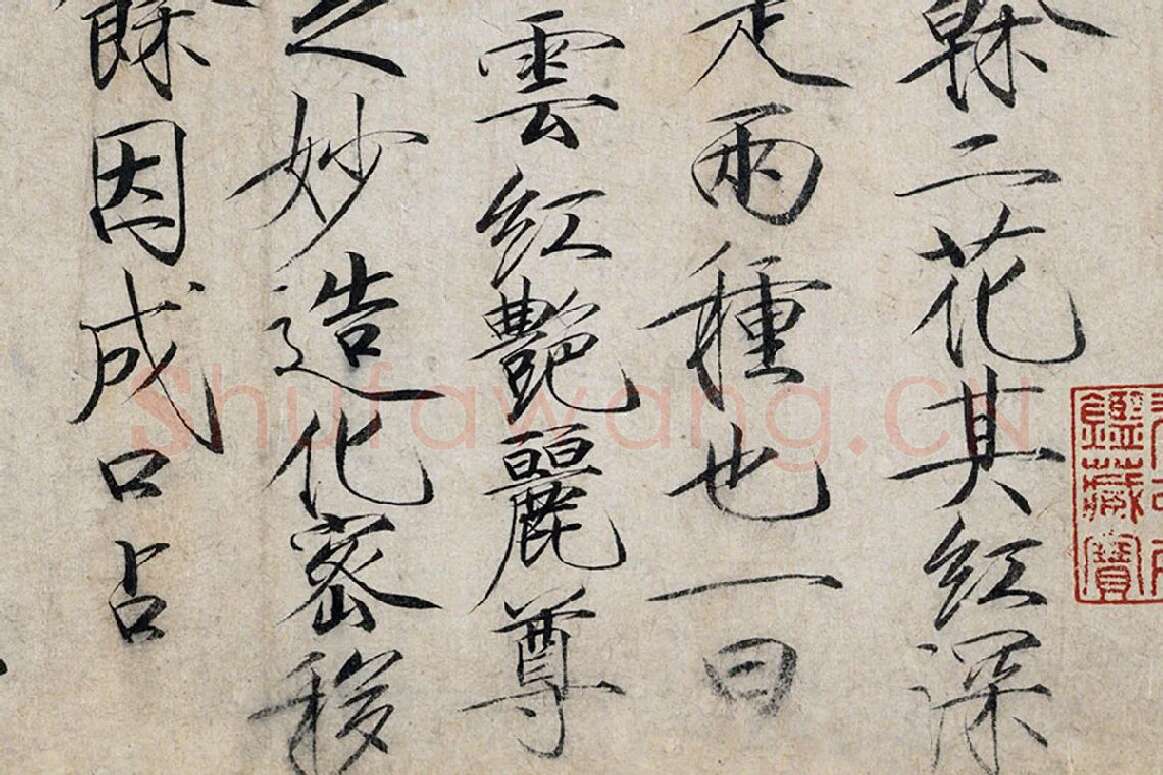 榦二花其紅深
是兩種也一曰
雲紅艷麗尊
之妙造化密移
餘因成口占
鑑藏寶
Shufawang.CN